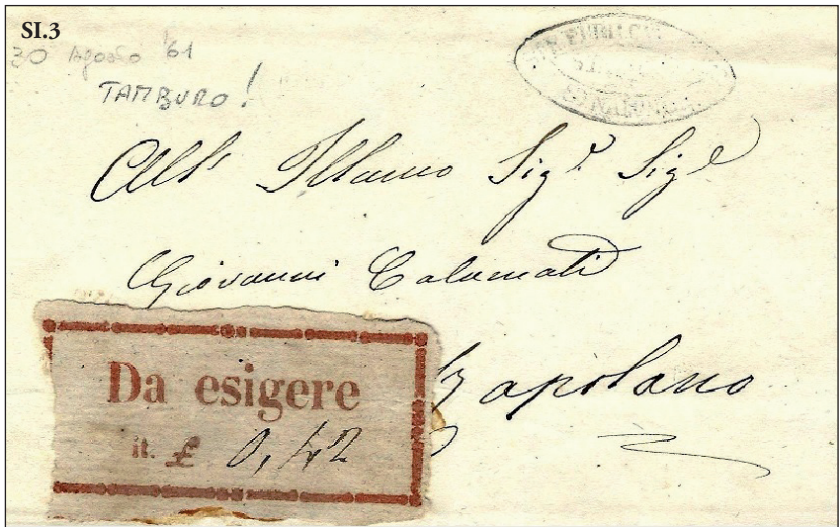 SI.3
30 Agosto '61
TAMBURO!
All' Illamo Sigr Sigr
Giovanni Calamati
Rapolano
Da esigere
it. £ 0,42